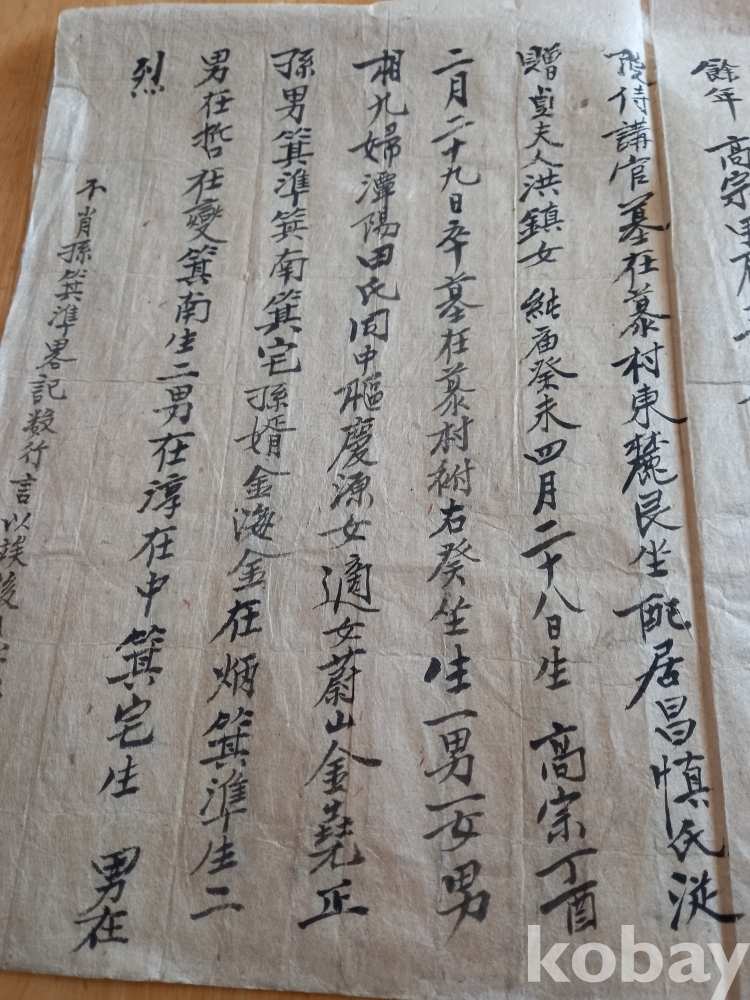 餘年 高宗
授侍講官墓在慕村東麓艮坐 配居昌愼氏從
贈貞夫人洪鎭女 純廟癸未四月二十八日生 高宗丁酉
二月二十九日卒墓在慕村祔右癸坐生一男一女男
相九婦潭陽田氏同中樞慶源女適女蔚山金堯正
孫男箕準箕南箕宅孫婿金海金在炳箕準生二
男在哲在夑箕南生二男在淳在中箕宅生 男在
烈
不肖孫箕準畧記数行言以俟後
kobay